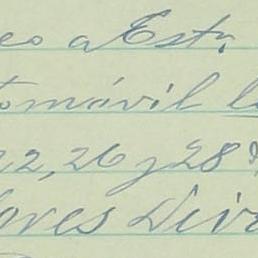 eo a Estr
tomóvil l
22, 26 y 28
ores Div